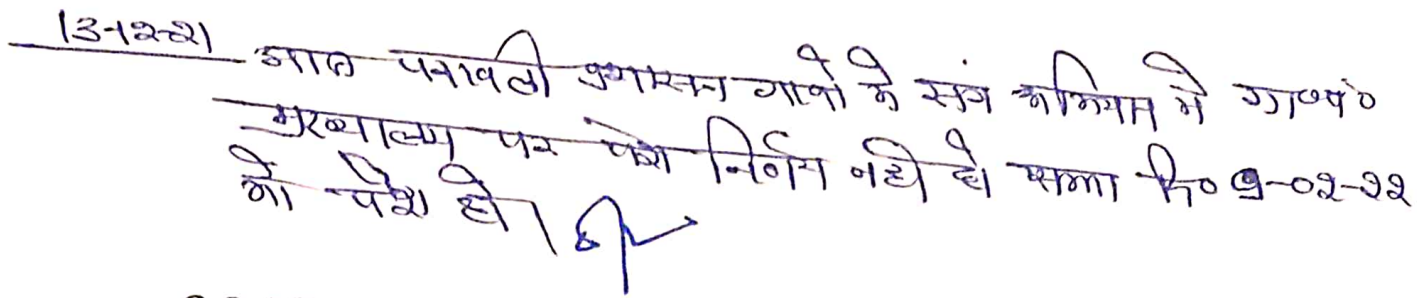 13-12-21 आज पत्रावली प्रशासन गावो के संग अभियान मे ग्रा०पं०
मुख्यालय पर पेश निर्णय नही हो सका दि० 9-02-22
को पेश हो।